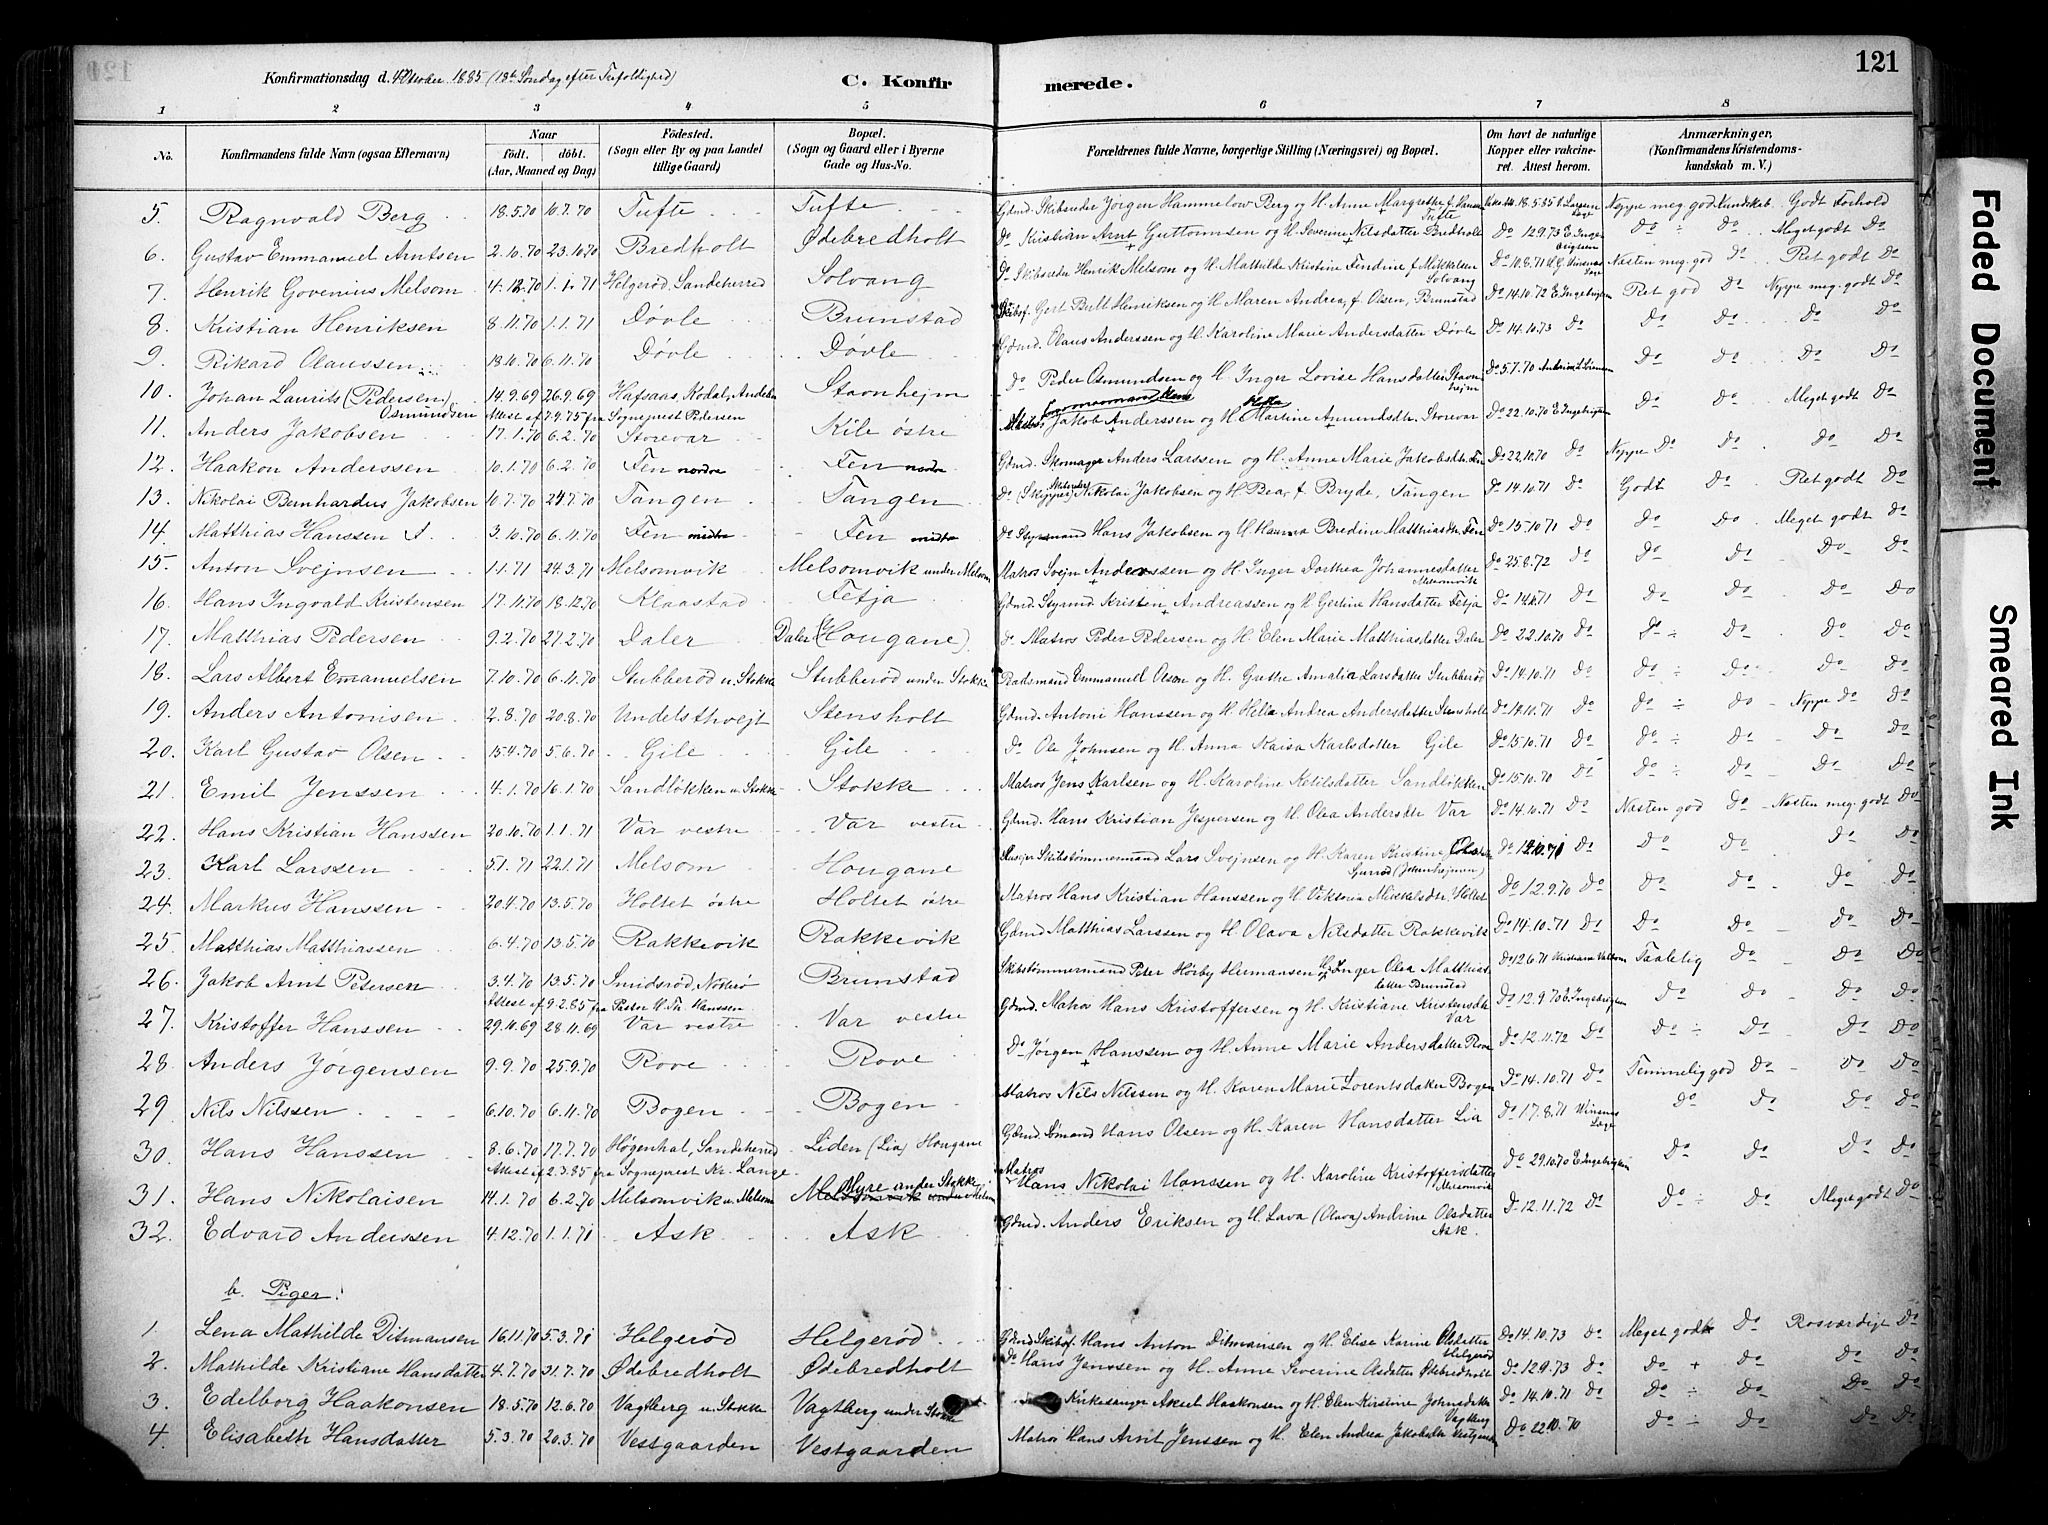 121
Konfirmationsdag d. 4 Oktober 1885 (18de Søndag efter Trefoldighed)
C. Konfirmerede.
1 2 3 4 5 6 7 8
No.
Konfirmandens fulde Navn (ogsaa Efternavn)
Naar
født. døbt.
(Aar, Maaned og Dag)
Fødested.
(Sogn eller By og paa Landet
tillige Gaard)
Bopæl.
(Sogn og Gaard eller i Byerne
Gade og Hus-No.
Forældrenes fulde Navne, borgerlige Stilling (Næringsvei) og Bopæl.
Om havt de naturlige
Kopper eller vakcine-
ret. Attest herom.
Anmærkninger,
(Konfirmandens Kristendoms-
kundskab m. V.)
5. Ragnvald Berg 18.5.70 10.7.70 Tufte Tufte Gdmd. Skibsreder Jørgen Hammelow Berg og H. Anne Margrethe f. Hansen Tufte 18.5.85 Neppe meg. god Kundskab. Godt Forhold
6. Gustav Emmanuel Arntsen 2.10.70 23.10.70 Bredholt Ødebredholt Do Kristian Arnt Guttormsen og H. Severine Nilsdatter Bredholt Do 12.9.73 E. Ingebrigtsen Do ÷ Do Meget godt Do
7. Henrik Govenius Melsom 4.12.70 1.1.71 Helgerød, Sandeherred Solvang Do Skibsreder Henrik Melsom og H. Mathilde Kristine Fendine f. Mikkelsen Solvang Do 10.8.71 Næsten meg. god Do Ret godt Do
8. Kristian Henriksen 8.11.70 1.1.71 Døvle Brunstad Skibsf. Gert Bull Henriksen og H. Maren Andrea, f. Olsen, Brunstad Do 14.10.72 E. Ingebrigtsen Ret god Do Neppe meg. godt Do
9. Rikard Olaussen 18.10.70 6.11.70 Døvle Døvle Gdmd. Olaus Anderssen og H. Karoline Marie Andersdatter Døvle Do 14.10.73 Do Do Do Do Do
10. Johan Laurits (Pedersen) Osmundsen 14.9.69 26.9.69 Hafsaas, Kodal, Andebu Stavnhejm Do Peder Osmundsen og H. Inger Lovise Hansdatter Stavnhejm Do 5.7.70 Do Do Do Do
Attest af 7.9.75 fra Sogneprest Pedersen
11. Anders Jakobsen 17.1.70 6.2.70 Storevar Kile østre Jakob Anderssen og H. Martine Amundsdtr. Storevar Do 22.10.70 E. Ingebrigtsen Do Do Meget godt Do
12. Haakon Anderssen 10.1.70 6.2.70 Fen nordre Fen nedre Gdmd. Skomager Anders Larssen og H. Anne Marie Jakobsdtr. Fen Do 22.10.70 Do Neppe Do Do Do Do
13. Nikolai Bernhardus Jakobsen 10.7.70 24.7.70 Tangen Tangen Do (Skipper) Nikolai Jakobsen og H. Bea, f. Bryde, Tangen Do 14.10.71 Do Godt Do Ret godt Do
14. Matthias Hanssen 3.10.70 6.11.70 Fen midtre Fen midtre Do Styrmand Hans Jakobsen og H. Hanna Bredine Matthiasdtr. Fen Do 15.10.71 Do Do Do Meget godt Do
15. Anton Svejnsen 1.1.71 24.3.71 Melsomvik Melsomvik under Melsom Matros Svejn Anderssen og H. Inger Dorthea Johannesdatter Melsomvik Do 25.8.72 Do Do Do Do Do
16. Hans Ingvald Kristensen 17.11.70 18.12.70 Klaastad Fetja Gdmd. Styrmd Kristen Andreassen og H. Gertine Hansdatter Fetja Do Do Do Do Do Do
17. Matthias Pedersen 9.2.70 27.2.70 Daler Daler (Hougane) Do Matros Peder Pedersen og H. Elen Marie Matthiasdatter Daler Do 22.10.70 Do Do ÷ Do Do Do
18. Lars Albert Emanuelsen 7.10.70 6.11.70 Stubberød u. Stokke Stubberød under Stokke Emmanuel Olsen og H. Grethe Amalia Larsdatter Stubberød Do 14.10.71 Do Do ÷ Do Do Do
19. Anders Antonisen 2.8.70 20.8.70 Undelsthvejt Stensholt Gdmd. Antoni Hanssen og H. Hella Andrea Andersdatter Stensholt Do 14.10.71 Do Do ÷ Do Neppe Do Do
20. Karl Gustav Olsen 15.4.70 5.6.70 Gile Gile Do Ole Johnsen og H. Anna Kaisa Karlsdatter Gile Do 15.10.71 Do Do ÷ Do Do Do
21. Emil Jenssen 4.1.70 16.1.70 Sandløkken u. Stokke Stokke Matros Jens Karlsen og H. Karoline Ketilsdatter Sandløkken Do 15.10.70 Do Do ÷ Do Do Do
22. Hans Kristian Hanssen 20.10.70 1.1.71 Var vestre Var vestre Gdmd. Hans Kristian Jespersen og H. Olea Andersdtr Var Do 14.10.71 Do Næsten god Do Næsten meg. godt Do
23. Karl Larssen 5.1.71 22.1.71 Melsom Hougane Husejer Skibstømmermand Lars Svejnsen og H. Karen Kristine Do Do Do Do Do Do
24. Markus Hanssen 20.4.70 13.5.70 Holtet østre Holtet østre Matros Hans Kristian Hanssen og H. Viktoria Mikkelsdtr. Holtet Do 12.9.70 Do Do Do Do Do
25. Matthias Matthiassen 6.4.70 13.5.70 Rakkevik Rakkevik Gdmd Matthias Larssen og H. Olava Nilsdatter Rakkevik Do 14.10.71 Do Do Do Do Do
26. Jakob Arnt Petersen 3.4.70 13.5.70 Smidsrød, Nøtterø Brunstad Skibstømmermand Peter Hørby Hermansen H. Inger Olea Matthiasdatter Brunstad Do 12.6.71 Taalelig Do Do Do
Attest af 9.2.85 fra Pastor H. Th. Hanssen
27. Kristoffer Hanssen 29.10.69 28.11.69 Var vestre Var vestre Gdmd. Matros Hans Kristoffersen og H. Kristiane Kristensdtr Var Do 12.9.70 E. Ingebrigtsen Do Do Do Do
28. Anders Jørgensen 9.9.70 25.9.70 Rove Rove Do Jørgen Hanssen og H. Anne Marie Andersdatter Rove Do 12.11.72 Do Do ÷ Do Do Do
29. Nils Nilssen 6.10.70 6.11.70 Bogen Bogen Matros Nils Nilssen og H. Karen Marie Lorentsdatter Bogen Do 14.10.71 Do Temmelig god Do Do Do
30. Hans Hanssen 8.6.70 17.7.70 Høgenhal, Sandeherred Liden (Lia) Hougane Gdmd. Sømand Hans Olsen og H. Karen Hansdatter Lia Do 17.8.71 Do Do Do Do
Attest af 2.3.85 fra Sogneprest Kr. Lange
31. Hans Nikolaisen 14.1.70 6.2.70 Melsomvik u. Melsom Myre under Stokke Matros Hans Nikolai Hanssen og H. Karoline Kristoffersdatter Melsomvik Do 29.10.70 E. Ingebrigtsen Do Do Do Do
32. Edvard Anderssen 4.12.70 1.1.71 Ask Ask Gdmd. Anders Eriksen og H. Lava (Olava) Andrine Olsdatter Ask. Do 12.11.72 Do Do ÷ Do Meget godt Do
b. Piger.
1. Lena Mathilde Ditmansen 16.11.70 5.3.71 Helgerød Helgerød Gdmd Skibsf. Hans Anton Ditmansen og H. Elise Karine Olsdatter Helgerød Do 14.10.73 Do Meget godt Do Rosværdigt Do
2. Mathilde Kristiane Hansdatter 4.7.70 31.7.70 Ødebredholt Ødebredholt Do Hans Jenssen og H. Anne Severine Olsdatter Ødebredholt Do 12.9.73 Do Do + Do Do Do
3. Edelborg Haakonsen 18.5.70 12.6.70 Vagtberg u. Stokke Vagtberg under Stokke Kirkesanger Aksel Haakonsen og H. Elen Kirstine Johnsdatter Vagtberg Do 14.10.71 Do Do ÷ Do Do Do
4. Elisabeth Hansdatter 5.3.70 20.3.70 Vestgaarden Vestgaarden Matros Hans Arvit Jenssen og H. Elen Andrea Jakobsdtr Vestgaarden Do 22.10.70 Do ÷ Do Do Do
Faded Document
Smeared Ink